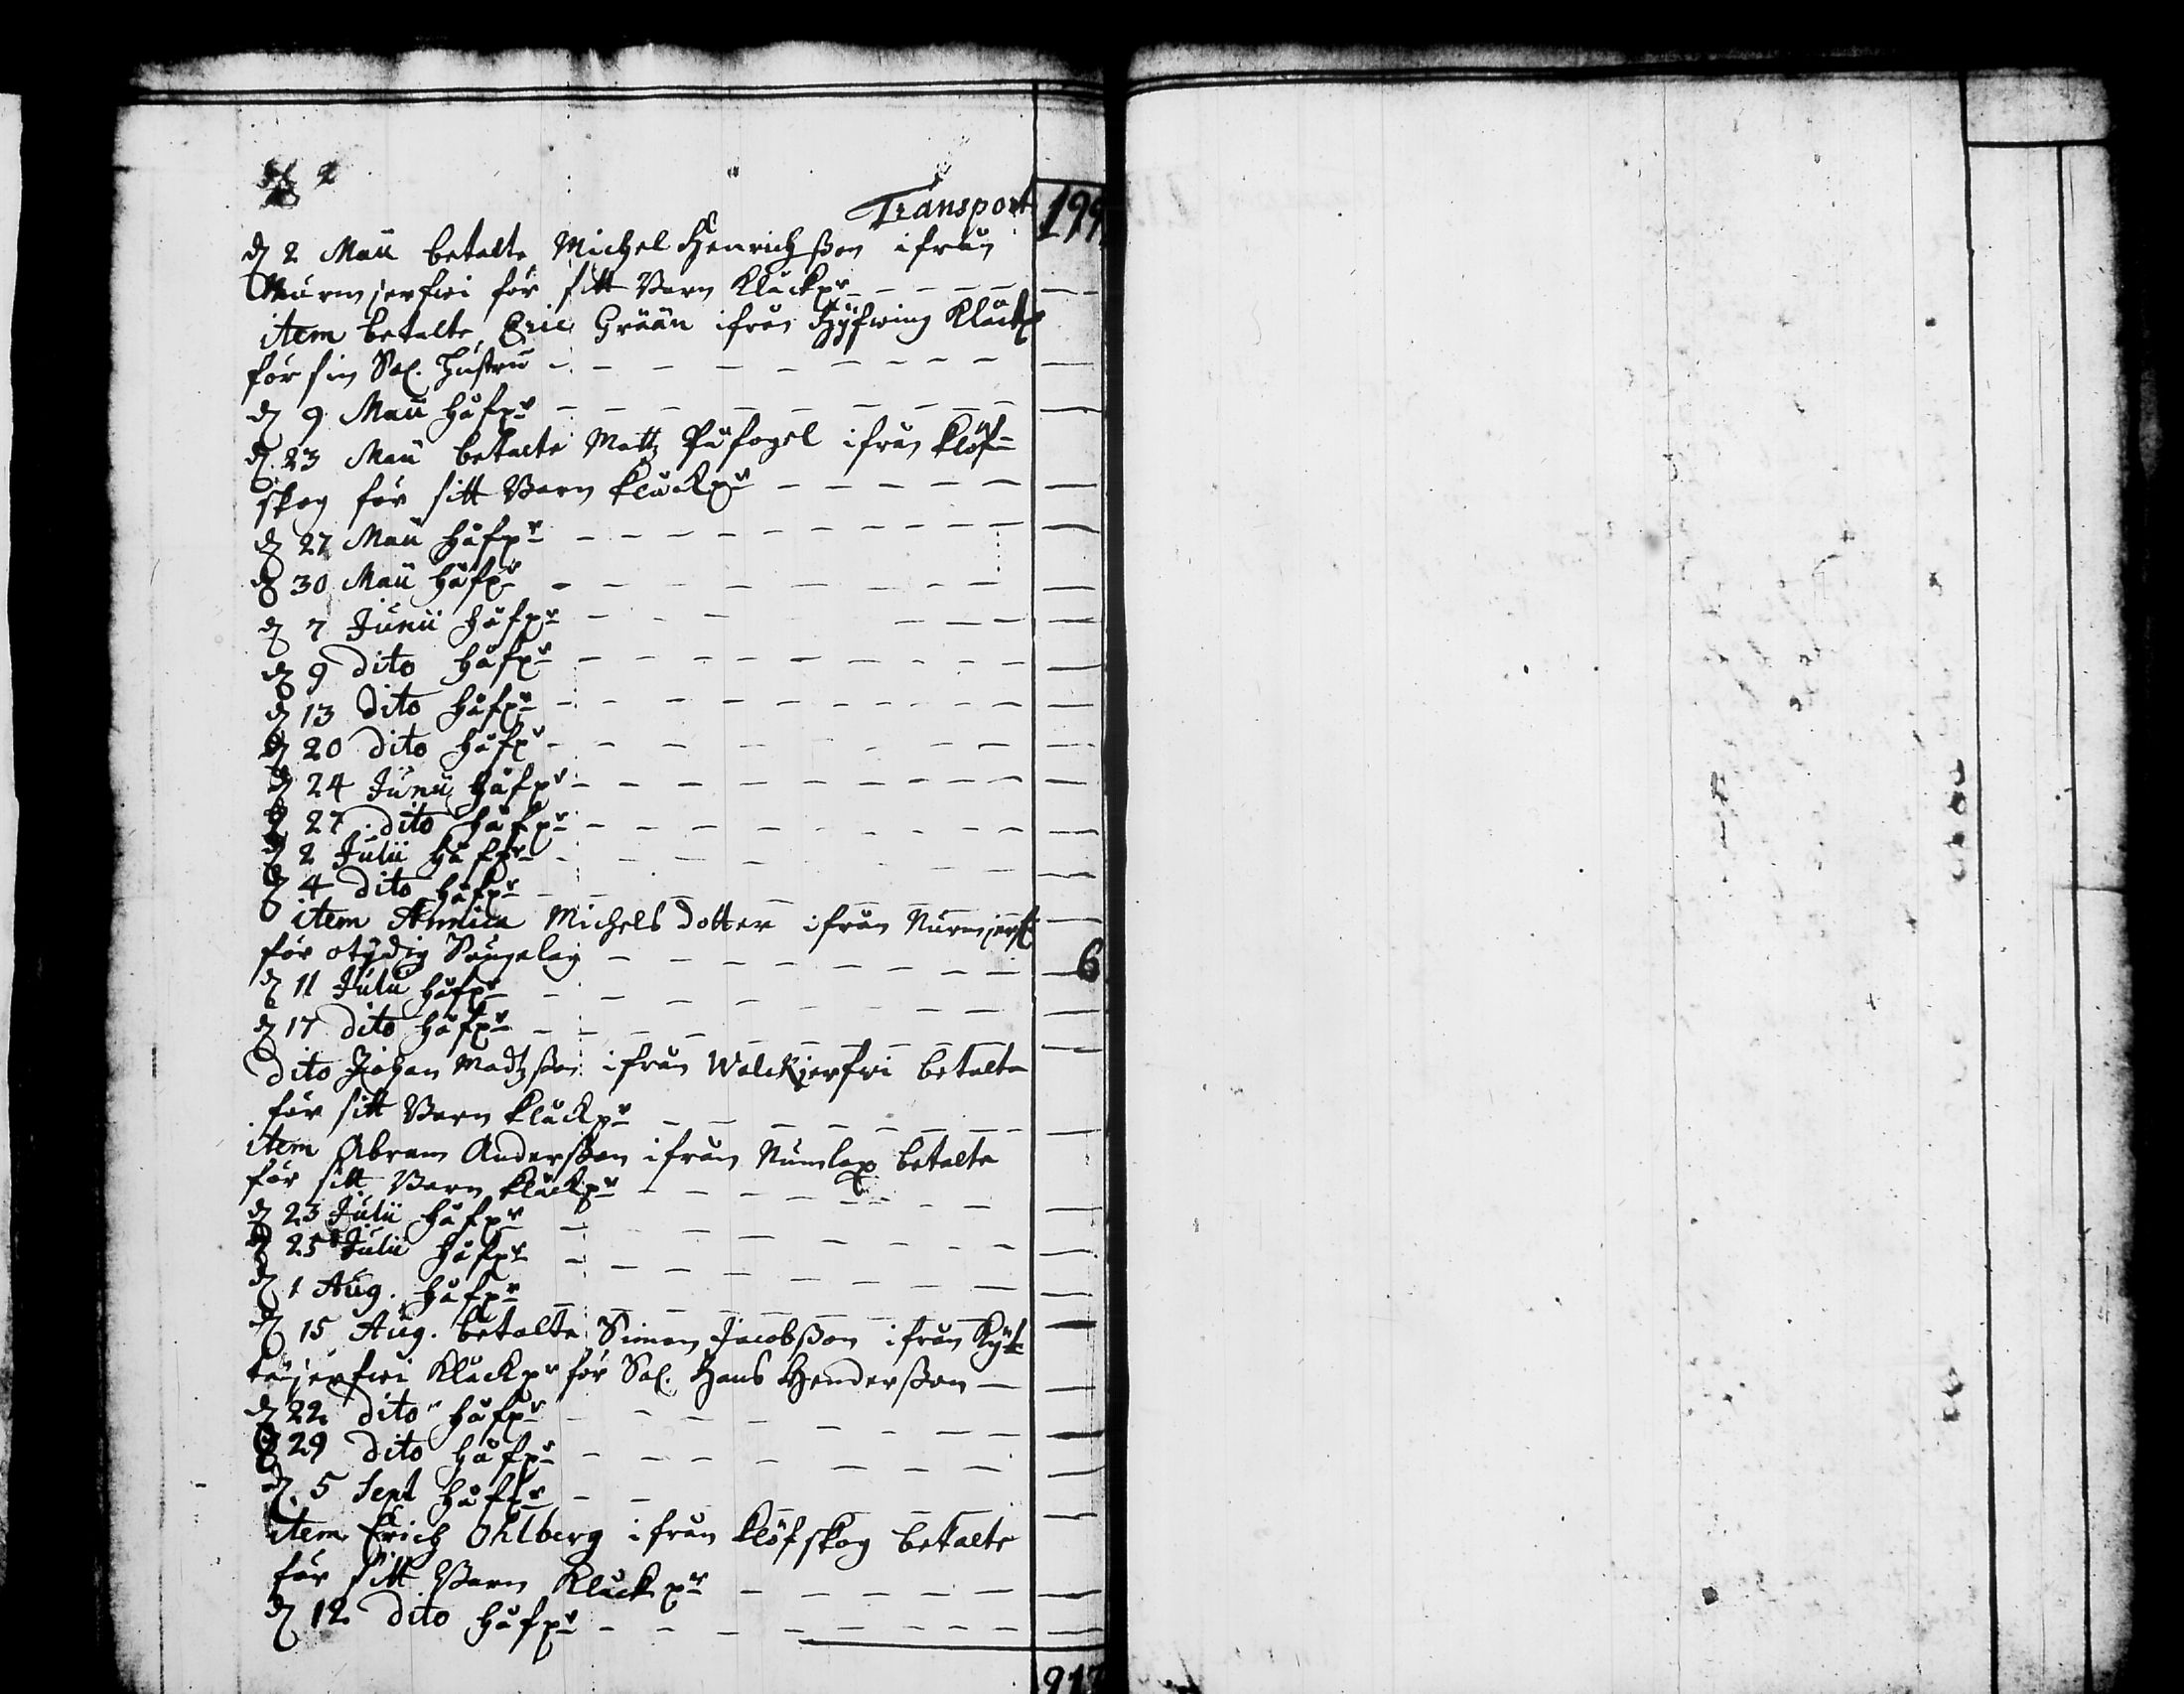 2
Transport 199
d 2 Maii betalte Michel Henrichsson ifrån
Nurmjerfwi för sitt Barn Klåckpr
item betalte Eric Gråån ifrån Hyfwing Klåckp
för sin Sal. Hustru
d 9 Maii Håfpr
d. 23 Maii betalte Mattz Påfogel ifrån Klöf-
skog för sitt Barn klåckpr
d 27 Maii Håfpr
d 30 Maii Håfpr
d 7 Junii Håfpr
d 9 dito Håfpr
d 13 dito Håfpr
d 20 dito Håfpr
d 24 Junii Håfpr
d 27 dito Håfpr
d 2 Julii Håfpr
d 4 dito Håfpr
item Annica Michels dotter ifrån Nurmjerf
för otydig Sängelag 6
d 11 Julii Håfpr
d 17 dito Håfpr
dito Johan Madtzson ifrån Walckjerfwi betalte
för sitt Barn klåckpr
item Abram Andersson ifrån Numlax betalte
för sitt Barn klåckpr
d 23 Julii Håfpr
d 25 Julii Håfpr
d 1 Aug. Håfpr
d 15 Aug. betalte Simon Jacobsson ifrån Kyt-
täjerfwi Klåckpr för Sal. Hans Hendersson
d 22 dito Håfpr
d 29 dito Håfpr
d. 5 Sept Håfpr
item Erich Ohlberg ifrån klöfskog betalte
för sitt Barn Klåckpr
d 12 dito Håfpr
217